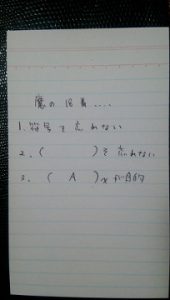 魔の日曜....
1. 符号を忘れない
2. (　　　)を忘れない
3. (　A　)xが目的